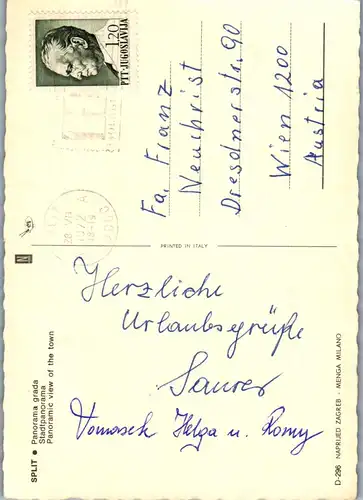 1.20
PTT·JUGOSLAVIJA
Fa. Franz
Neuchrist
Dresdnerstr. 90
Wien 1200
Austria
PRINTED IN ITALY
Herzliche
Urlaubsgrüße
Saurer
Tomasek Helga u. Romy
SPLIT ● Panorama grada
Stadtpanorama
Panoramic view of the town
D-296 NAPRIJED ZAGREB - MENGA MILANO